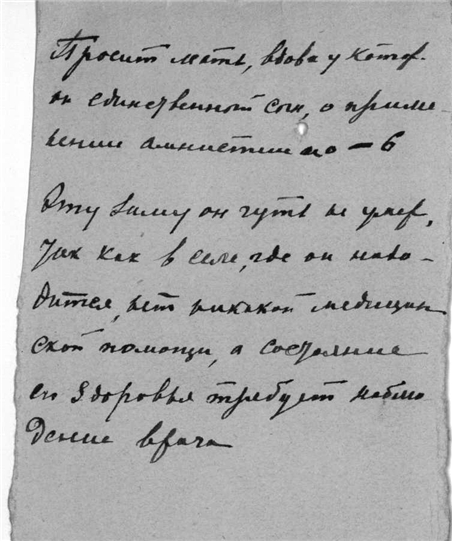 Просит мать, вдова у котор-
ой единственный сын, о приме
нении амнистии по – 6
Эту зиму он чуть не умер,
так как в селе, где он нахо-
дится, нет никакой медицин
ской помощи, а состояние
его здоровья требует наблю
дение врача